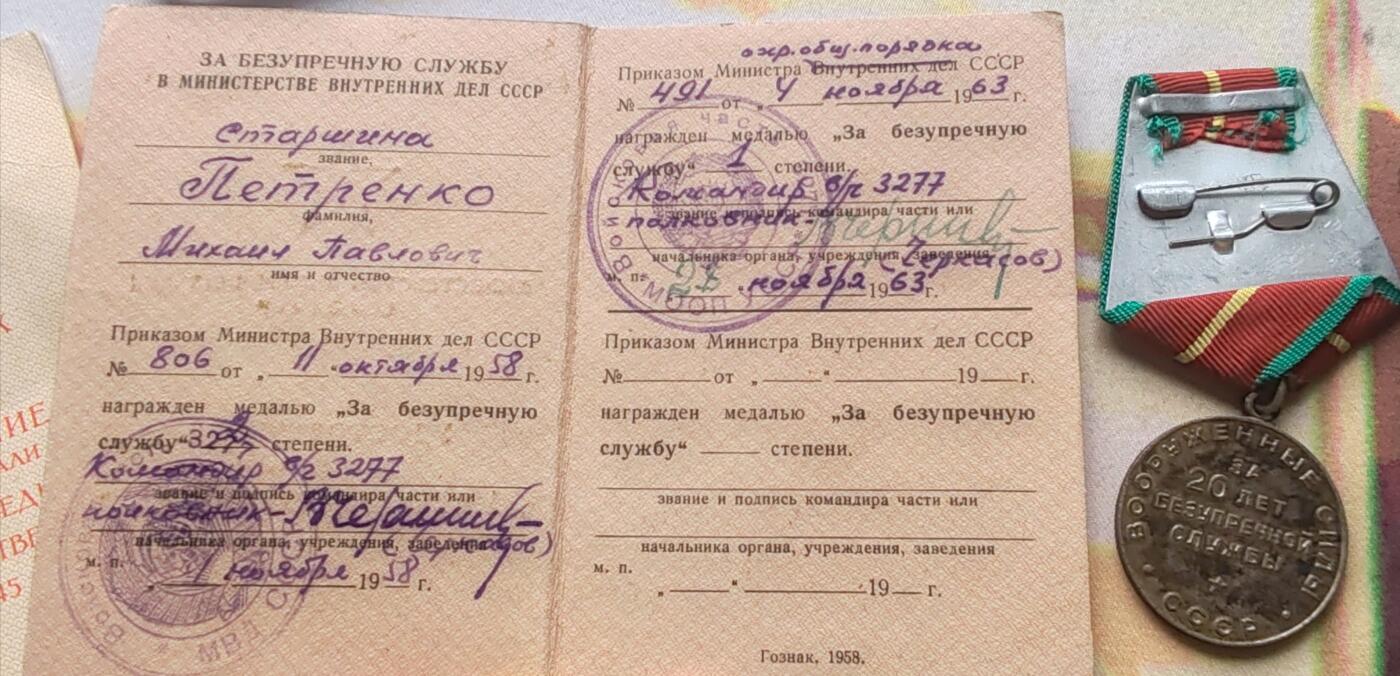 ЗА БЕЗУПРЕЧНУЮ СЛУЖБУ
В МИНИСТЕРСТВЕ ВНУТРЕННИХ ДЕЛ СССР
Старшина
звание,
Петренко
фамилия,
Михаил Павлович
имя и отчество
Приказом Министра Внутренних дел СССР
№ 806 от „ 11 “ октября 19 58 г.
награжден медалью „За безупречную
службу“ степени.
Командир в/ч 3277
звание и подпись командира части или
полковник-
начальника органа, учреждения, заведения
м. п.
„ 1 ноября 19 58 г.
МВД С
охр. общ. порядка
Приказом Министра Внутренних дел СССР
№ 491 от „ 4 ноября 19 63 г.
награжден медалью „За безупречную
службу“ 1 степени.
Командир в/ч 3277
звание и подпись командира части или
полковник-
начальника органа, учреждения, заведения
(Черкасов)
м. п.
ноября 19 63 г.
МООП
Приказом Министра Внутренних дел СССР
№ от „ “ 19 г.
награжден медалью „За безупречную
службу“ степени.
звание и подпись командира части или
начальника органа, учреждения, заведения
м. п.
„ “ 19 г.
Гознак, 1958.
ВООРУЖЕННЫЕ СИЛЫ
ЗА
20 ЛЕТ
БЕЗУПРЕЧНОЙ
СЛУЖБЫ
СССР
ИЕ
45